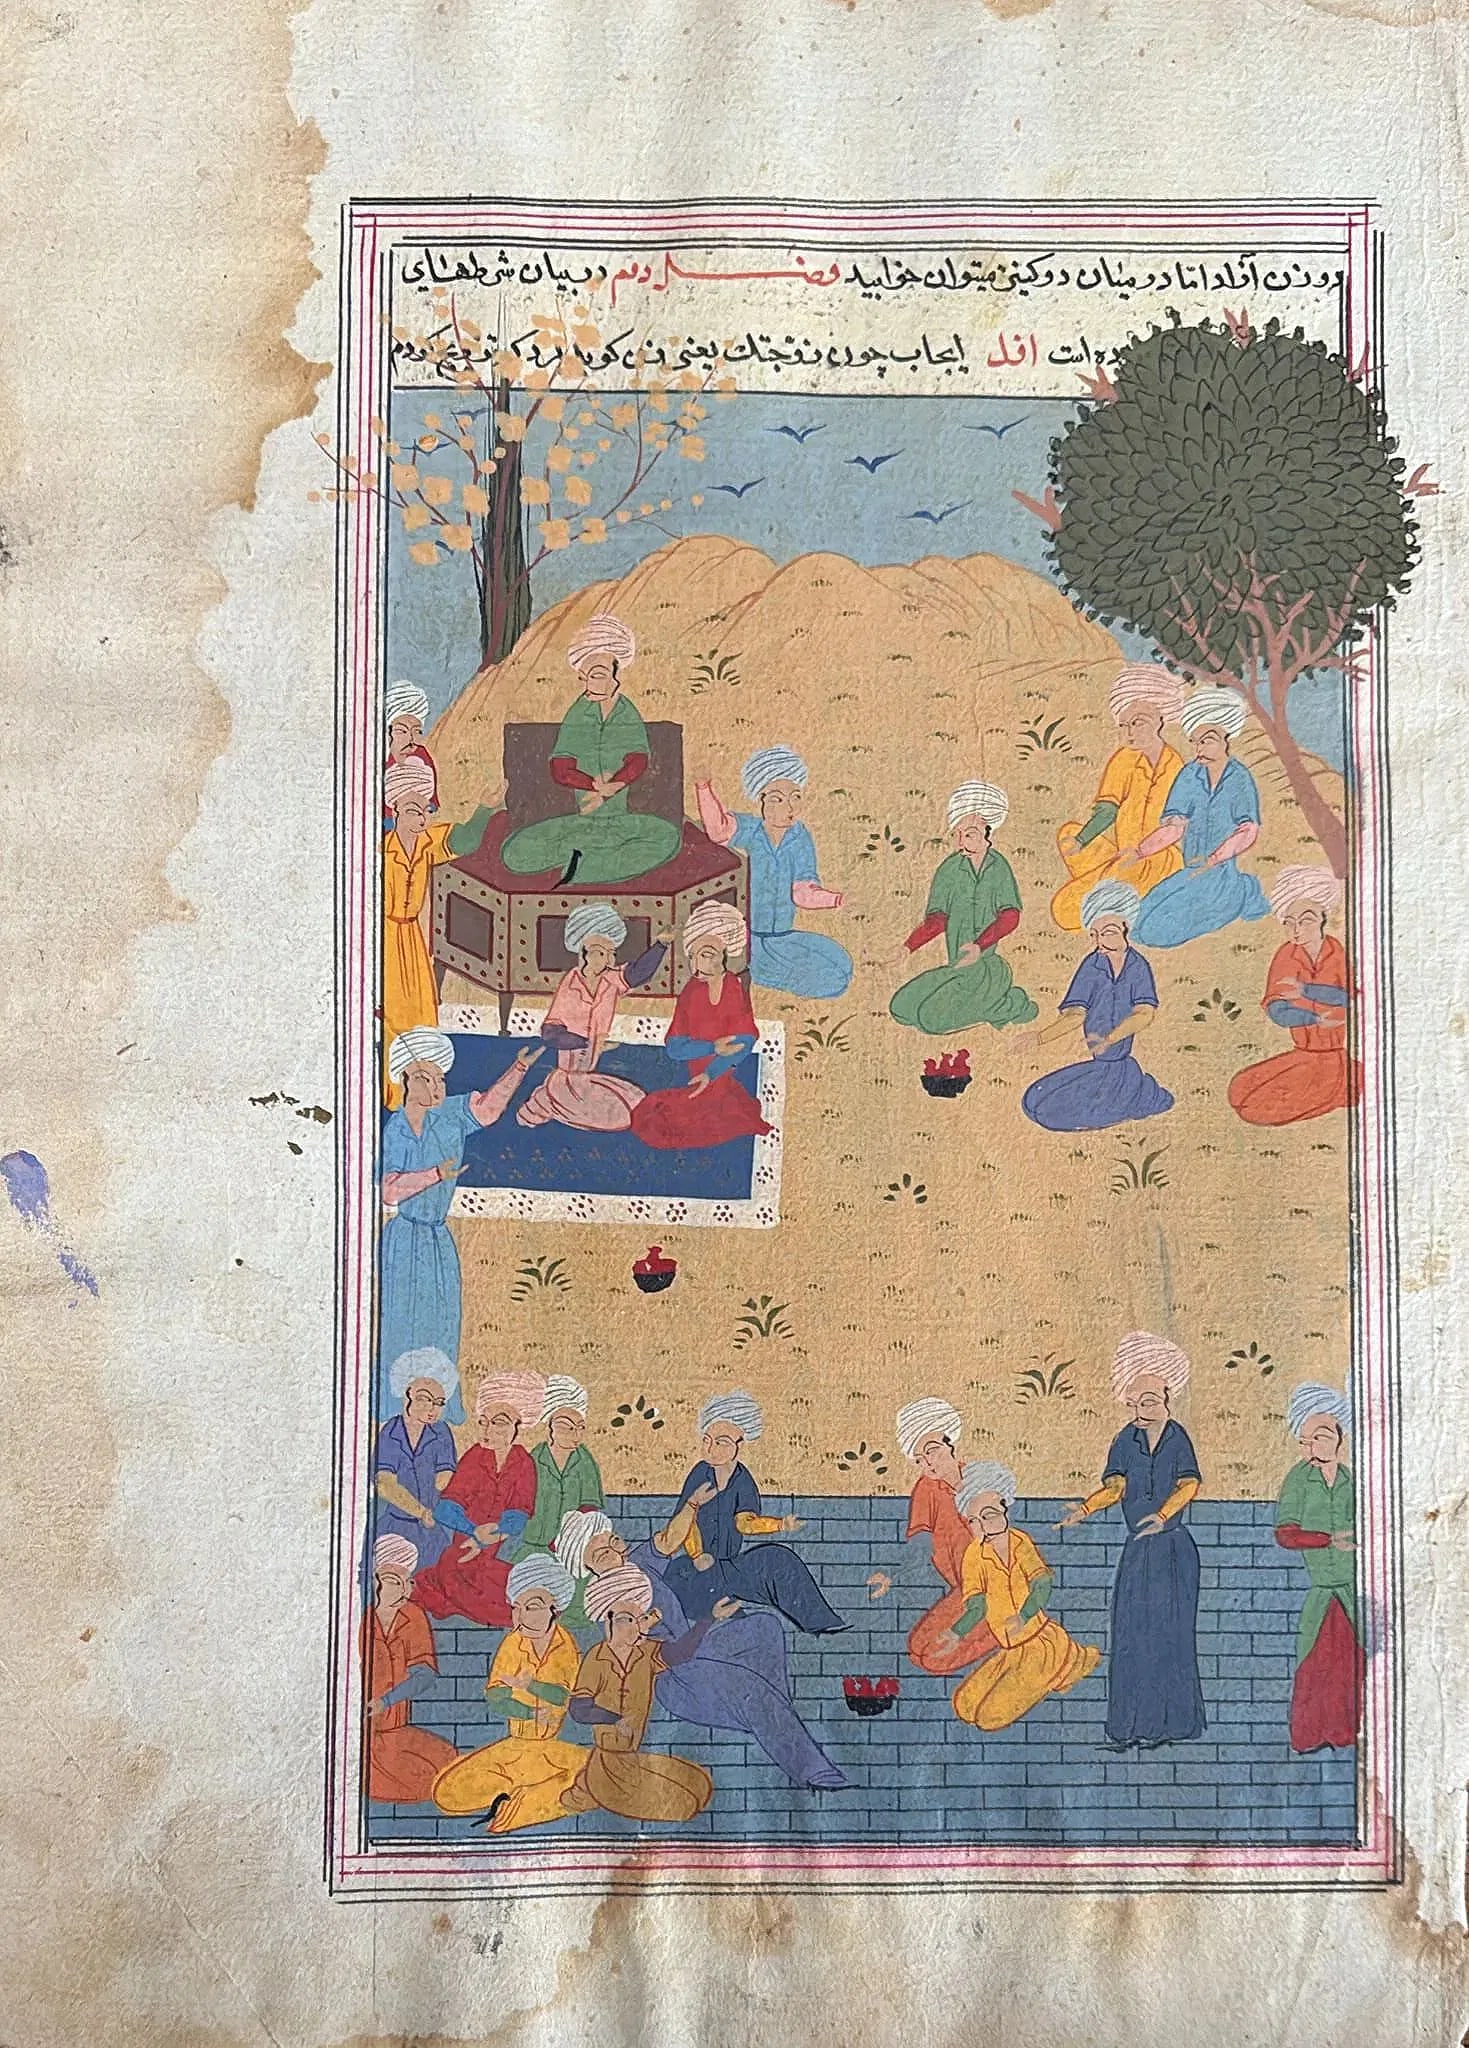 دو زن آزاد اما دو میان دو کنیز میتوان خوابید فصل دوم در بیان شرطهای
ده است اول ایجاب چون زوجتك یعنی زن کوید مرد که تزویج کردم